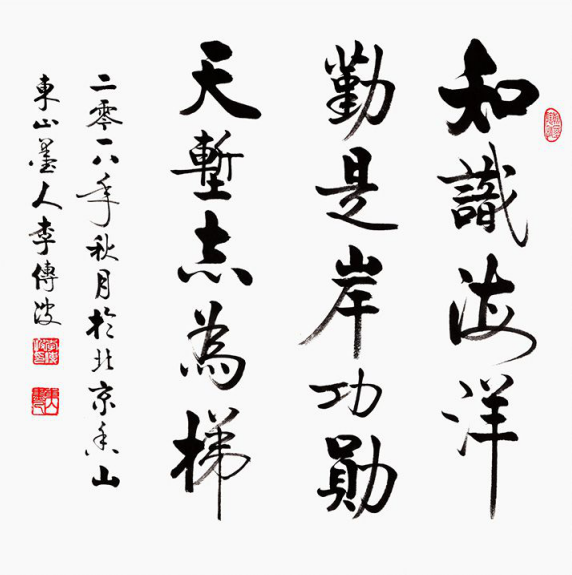 知識海洋
勤是岸功勛
天塹志為梯
二零一八年秋月於北京香山
東山墨人李傳波